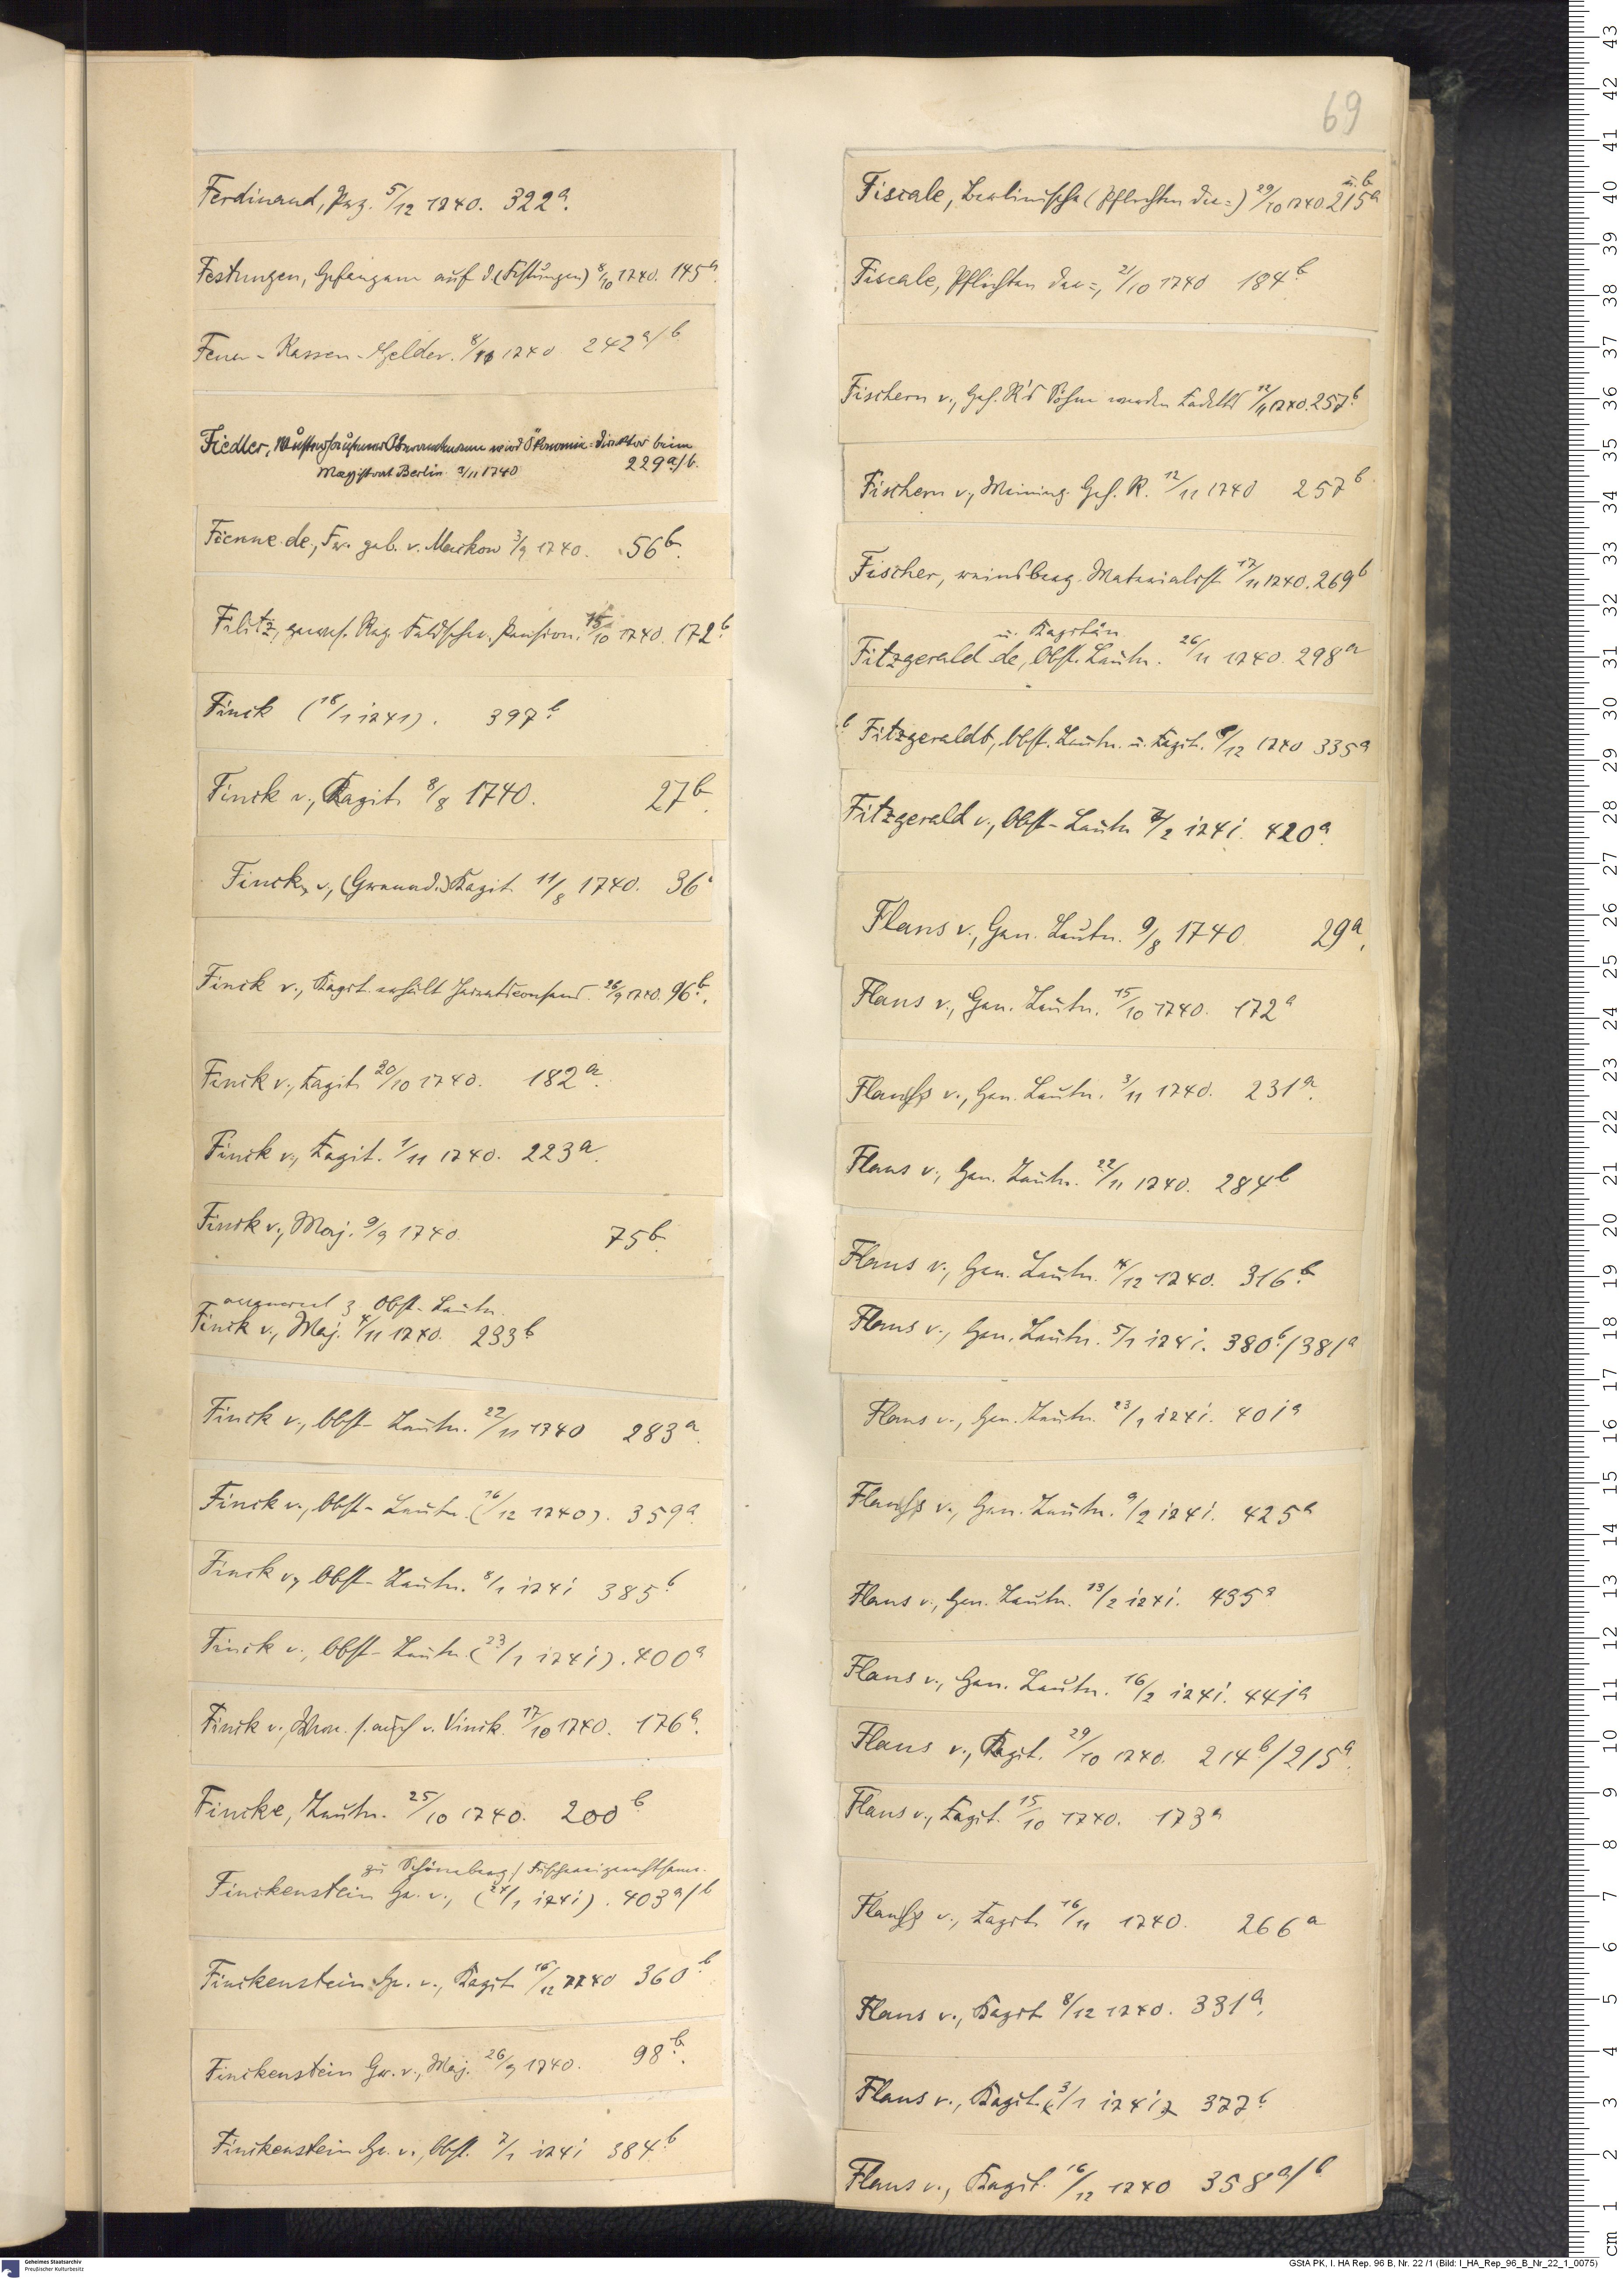 69
Ferdinand, Prz. 5/12 1740. 322a.
Festungen, Gefangene auf d. (Festungen) 8/10 1740. 145a.
Feuer-Kassen-Gelder. 8/11 1740 242a/b
Fiedler, Oberamtmann wird Ökonomie-Direktor beim
Magistrat Berlin. 3/11 1740 229a/b.
Fienne de, Fr. geb. v. Markow 3/9 1740. 56b.
Filitz, gewes. Reg. Feldscher, Pension. 15/10 1740. 172b.
Finck (18/1 1741). 397b.
Finck v., Kapit. 8/8 1740. 27b.
Finck v., (Grenad.) Kapit. 11/8 1740. 36
Finck v., Kapit. erhält Heiratsconsens. 26/9 1740. 96b.
Finck v., Kapit. 20/10 1740. 182a.
Finck v., Kapit. 1/11 1740. 223a.
Finck v., Maj. 9/9 1740 75b.
avanciert z. Obst. Leutn.
Finck v., Maj. 4/11 1740. 233b
Finck v., Obst-Leutn. 22/11 1740 283a.
Finck v., Obst-Leutn. (16/12 1740). 359a.
Finck v., Obst-Leutn. 8/1 1741 385b.
Finck v., Obst-Leutn. (23/1 1741). 400a
Finck v., s. auch v. Vinck. 17/10 1740. 176a.
Fincke, Leutn. 25/10 1740. 200b.
zu Schöneberg/ Fischereigerechtsame.
Finckenstein Gr. v., (24/1 1741). 403a/b
Finckenstein Gr. v., Kapit. 16/12 1740 360b.
Finckenstein Gr. v., Maj. 26/9 1740. 98b.
Finckenstein Gr. v., Obst. 7/1 1741 384b.
u. b
Fiscale, Berlinische (Pflichten der=) 29/10 1740 215a
Fiscale, Pflichten der=, 21/10 1740 184b
Fischern v., Geh. R's Söhne werden Kadetts 12/11 1740. 257b.
Fischern v., Meining. Geh. R. 12/11 1740 257b.
Fischer, reinsberg. Materialist 17/11 1740. 269b
u. Kapitän
Fitzgerald de, Obst. Leutn. 26/11 1740. 298a
Fitzgeraldt, Obst. Leutn. u. Kapit. 9/12 1740 335a
Fitzgerald v., Obst-Leutn 7/2 1741. 420a.
Flans v., Gen. Leutn. 9/8 1740 29a.
Flans v., Gen. Leutn. 15/10 1740. 172a
Flanß v., Gen. Leutn. 3/11 1740. 231a.
Flans v., Gen. Leutn. 22/11 1740. 284b
Flans v., Gen. Leutn. 4/12 1740. 316b.
Flans v., Gen. Leutn. 5/1 1741. 380b./381a
Flans v., Gen. Leutn. 23/1 1741. 401a
Flanß v., Gen. Leutn. 9/2 1741. 425a
Flans v., Gen. Leutn. 13/2 1741. 435a
Flans v., Gen. Leutn. 16/2 1741. 441a
Flans v., Kapit. 29/10 1740. 214b/215a.
Flans v., Kapit. 15/10 1740. 173a
Flanß v., Kapit. 16/11 1740. 266a
Flans v., Kapit 8/12 1740. 331a.
Flans v., Kapit. 3/1 1741 377b.
Flans v., Kapit. 16/12 1740 358a/b
Geheimes Staatsarchiv
Preußischer Kulturbesitz
GStA PK, I. HA Rep. 96 B, Nr. 22 /1 (Bild: I_HA_Rep_96_B_Nr_22_1_0075)